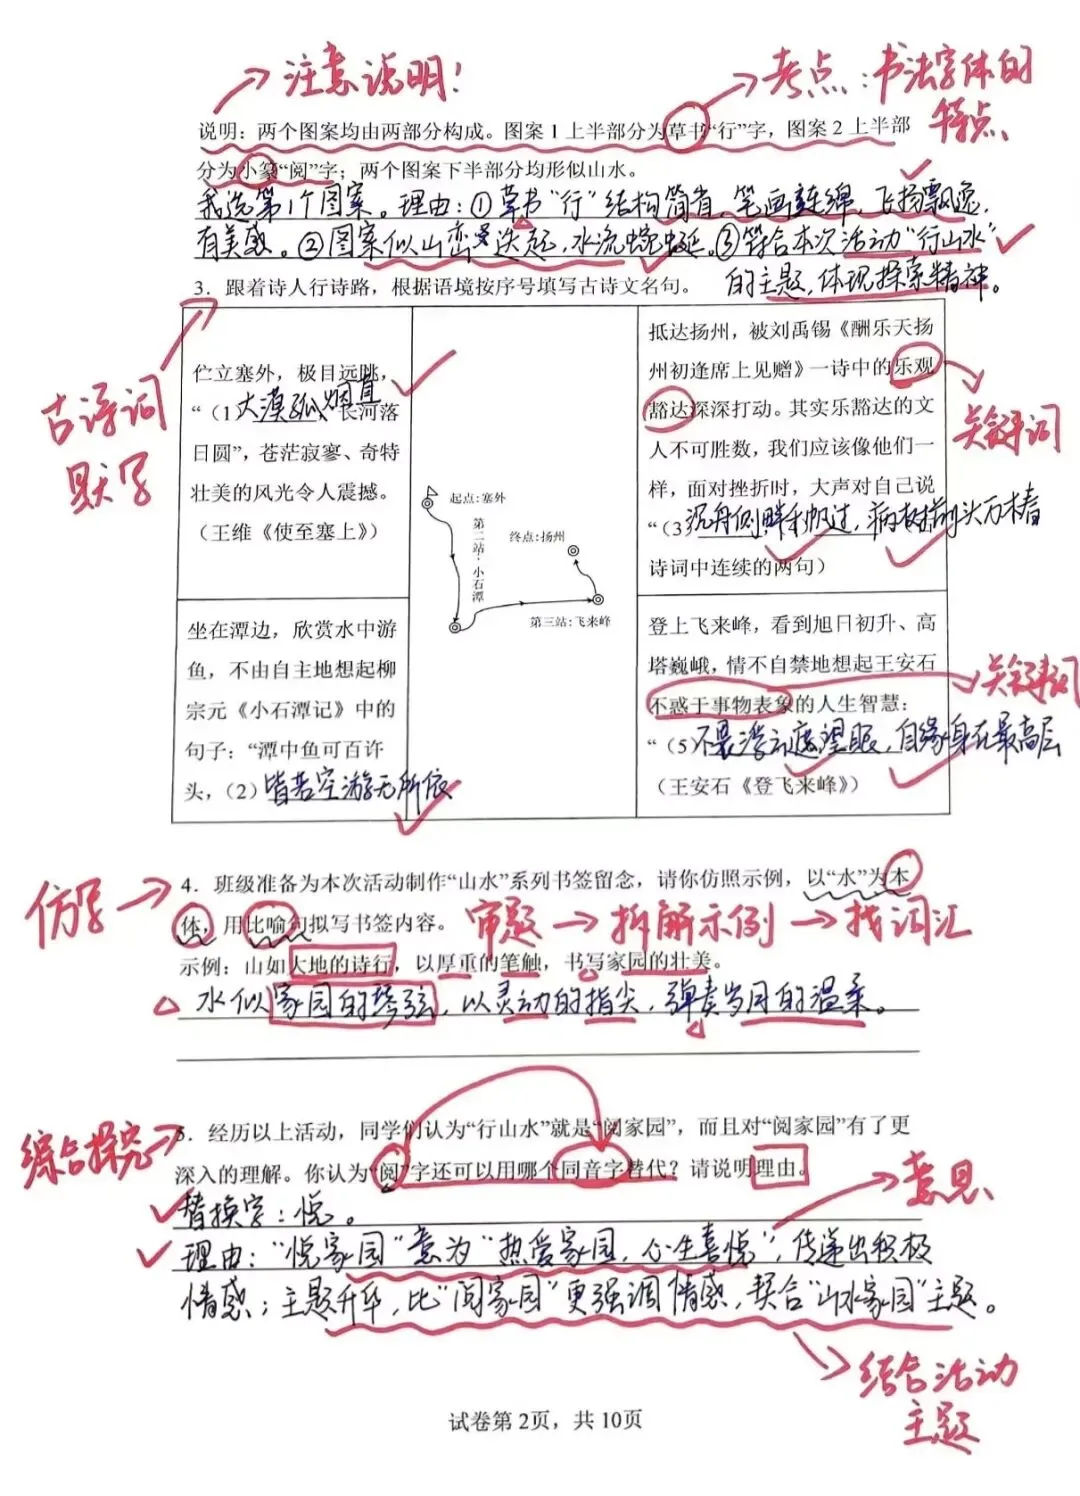 注意说明!
考点:书法字体的
特点
说明:两个图案均由两部分构成。图案1上半部分为草书“行”字,图案2上半部
分为小篆“阅”字;两个图案下半部分均形似山水。
我选第1个图案。理由:①草书“行”结构简省,笔画连绵,飞扬飘逸,
有美感。②图案似山峦迭起,水流蜿蜒。③符合本次活动“行山水”
的主题,体现探索精神。
3.跟着诗人行诗路,根据语境按序号填写古诗文名句。
古诗词
默写
伫立塞外,极目远眺,
“(1)大漠孤烟直,长河落
日圆”,苍茫寂寥、奇特
壮美的风光令人震撼。
(王维《使至塞上》)
坐在潭边,欣赏水中游
鱼,不由自主地想起柳
宗元《小石潭记》中的
句子:“潭中鱼可百许
头,(2)皆若空游无所依
起点:塞外
第二站:小石潭
终点:扬州
第三站:飞来峰
抵达扬州,被刘禹锡《酬乐天扬
州初逢席上见赠》一诗中的乐观
豁达深深打动。其实乐豁达的文
人不可胜数,我们应该像他们一
样,面对挫折时,大声对自己说
“(3)沉舟侧畔千帆过,病树前头万木春
诗词中连续的两句)
关键词
登上飞来峰,看到旭日初升、高
塔巍峨,情不自禁地想起王安石
不惑于事物表象的人生智慧:
“(5)不畏浮云遮望眼,自缘身在最高层
(王安石《登飞来峰》)
关键词
仿写
4.班级准备为本次活动制作“山水”系列书签留念,请你仿照示例,以“水”为本
体,用比喻句拟写书签内容。
审题→拆解示例→找词汇
示例:山如大地的诗行,以厚重的笔触,书写家园的壮美。
水似家园的琴弦,以灵动的指尖,弹奏岁月的温柔。
综合探究
5.经历以上活动,同学们认为“行山水”就是“阅家园”,而且对“阅家园”有了更
深入的理解。你认为“阅”字还可以用哪个同音字替代?请说明理由。
意思
替换字:悦。
理由:“悦家园”意为“热爱家园,心生喜悦”,传递出积极
情感;主题升华,比“阅家园”更强调情感,契合“山水家园”主题。
结合活动
主题
试卷第2页,共10页